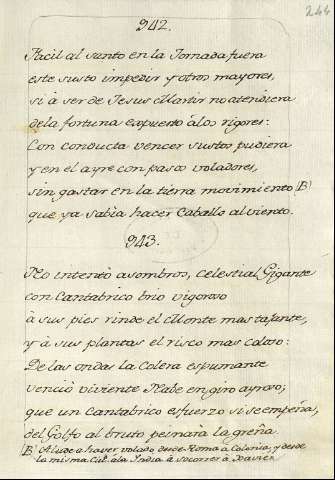 244
242.
Facil al santo en la Jornada fuera
este susto impedir y otros mayores,
si à ser de Jesus Martir no atendiera
de la fortuna expuesto à los rigores:
Con conducta vencer sustos pudiera
y en el ayre con pasos voladores,
sin gastar en la tierra movimiento (B)
que ya sabia hacer Caballo al viento.
243.
No intentò asombros, Celestial Gigante
con Cantabrico brio vigoroso
à sus pies rinde el Monte mas tajante,
y à sus plantas el risco mas coloso:
De las ondas la Colera espumante
venciò viviente Nabe en giro ayroso;
que un Cantabrico esfuerzo si se empeña,
del Golfo al bruto peinarà la greña
(B) Alude a haver volado desde Roma à Colonia, y desde
la misma Ciud. a la India à socorrer à Xavier.